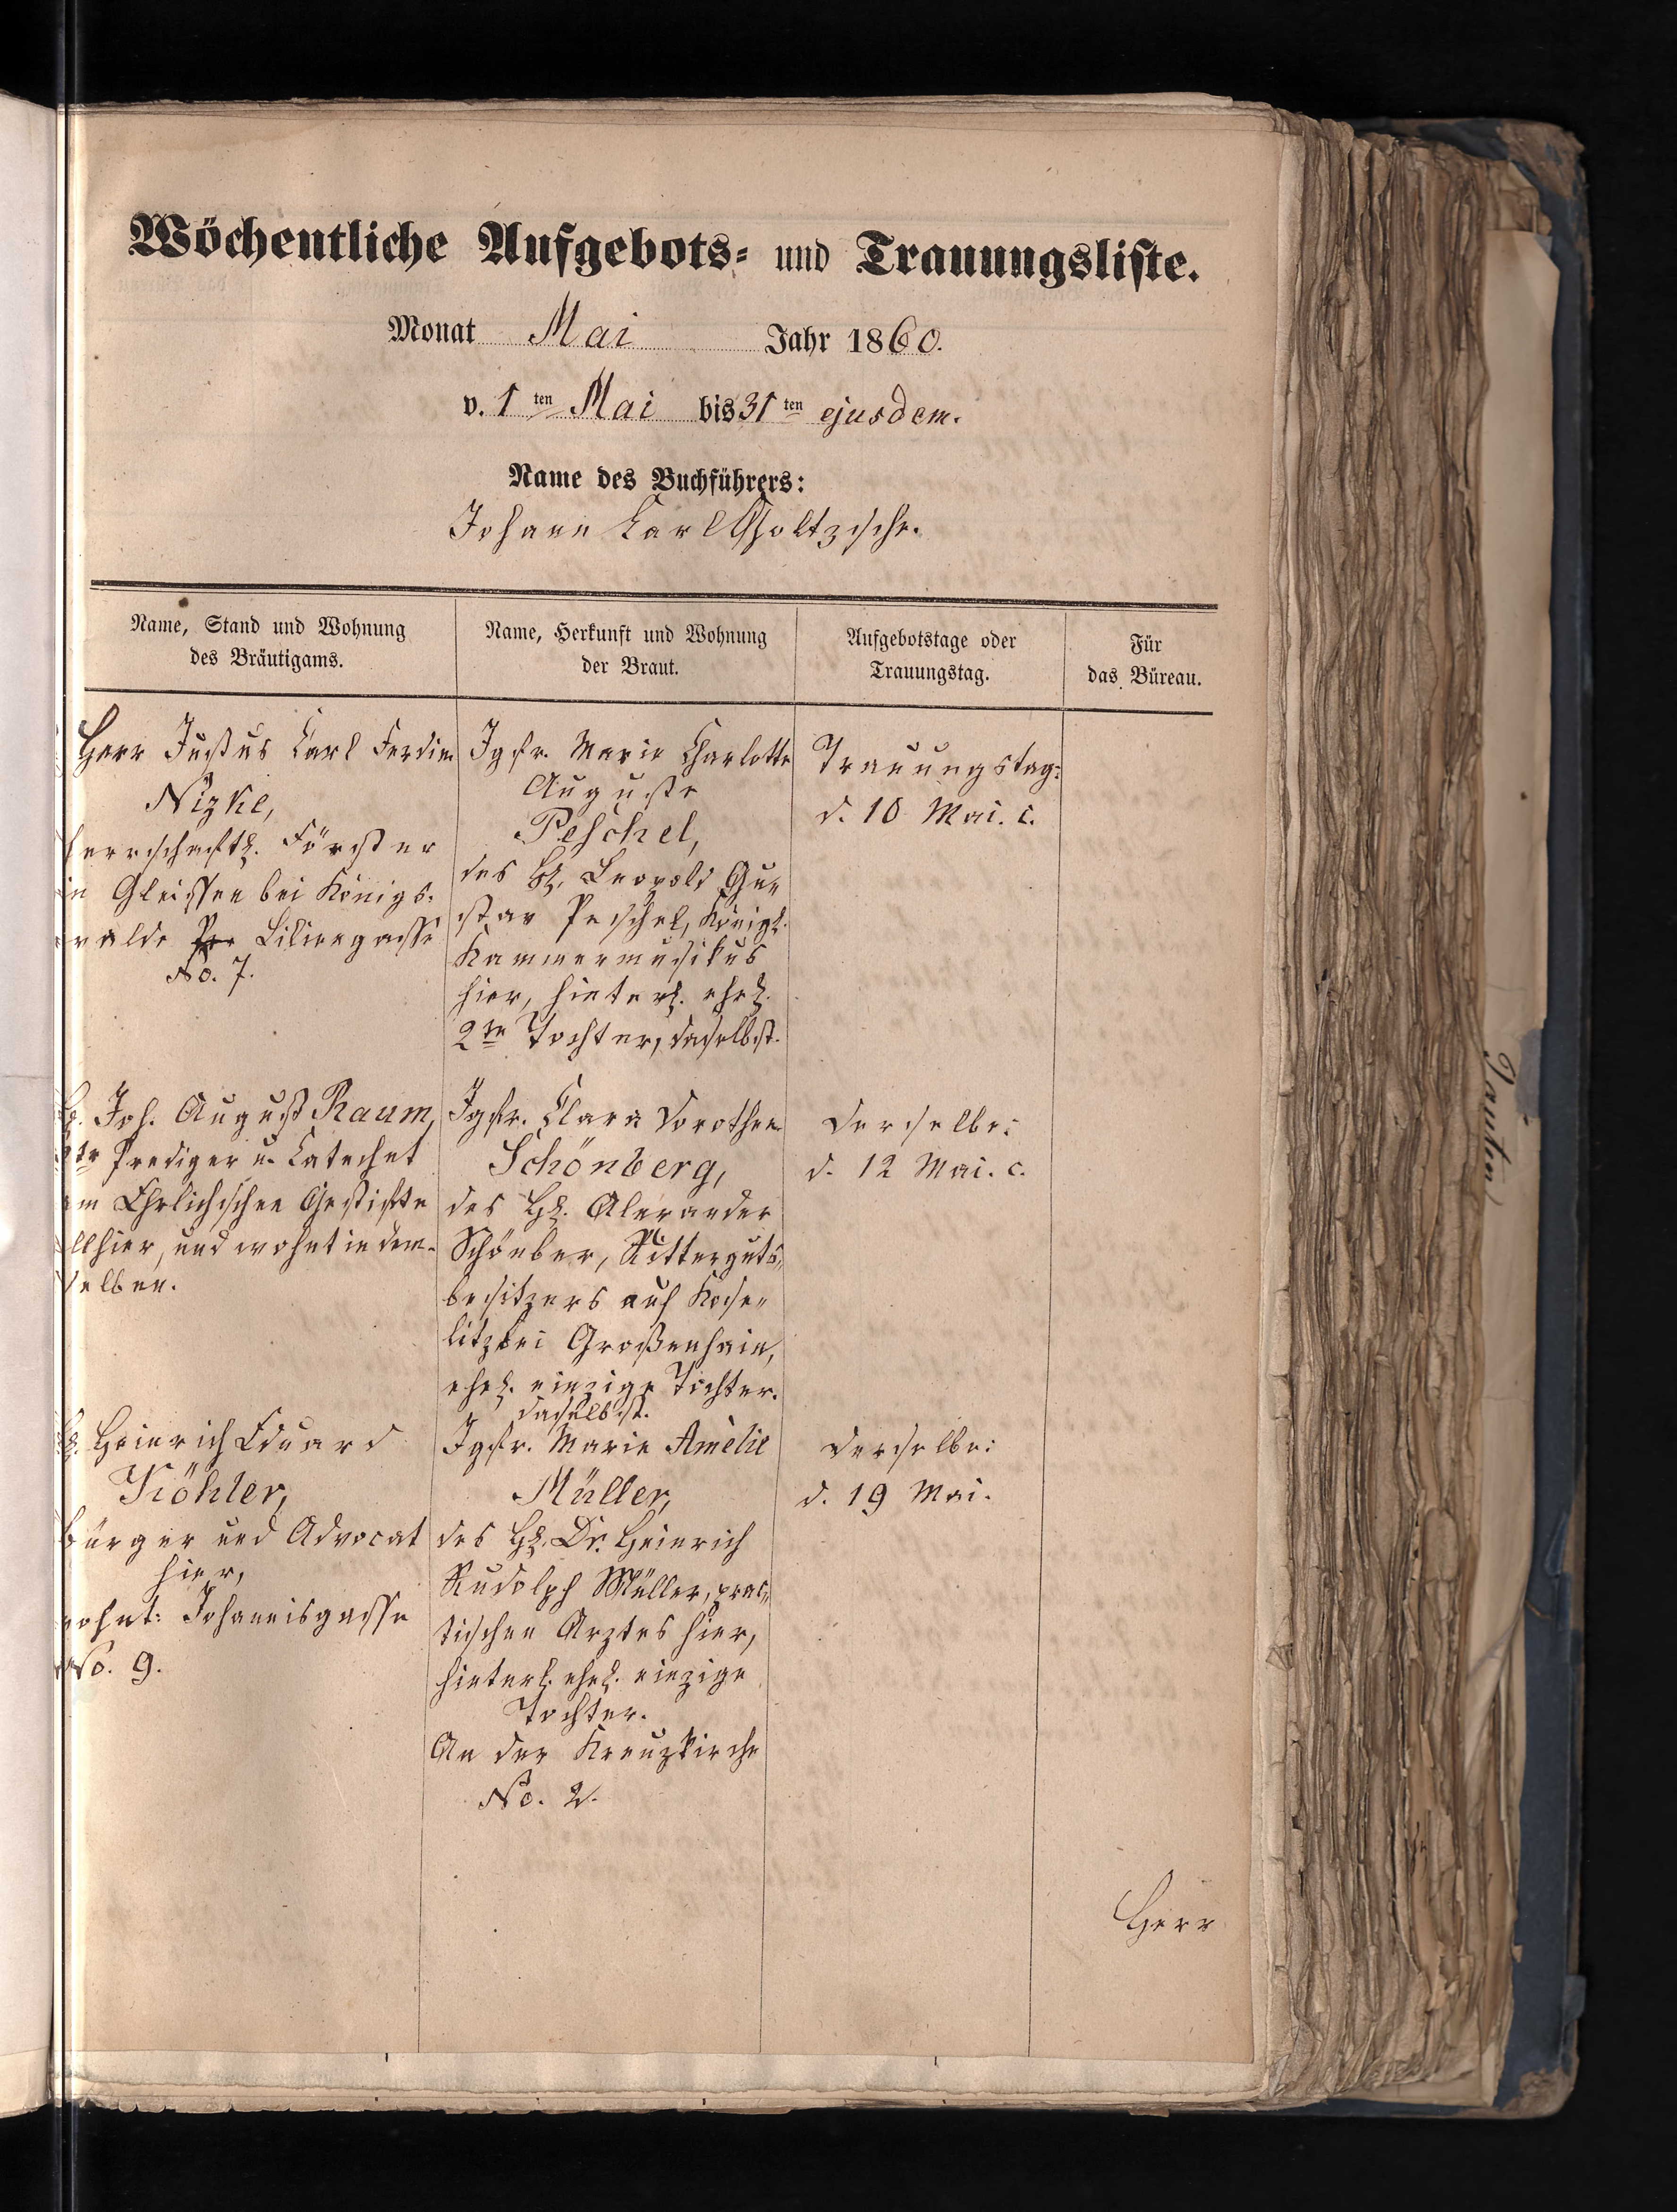 Wöchentliche Aufgebots= und Trauungsliste.
Monat Mai Jahr 1860.
v. 1 ten Mai bis 31 ten ejusdem.
Name des Buchführers:
Johann Carl
Name, Stand und Wohnung
des Bräutigams.
Name, Herkunft und Wohnung
der Braut.
Aufgebotstage oder
Trauungstag.
Für
das Büreau.
Herr Justus Carl Ferdin
Nizke,
herrschaftl. Förster
in Gleissen bei Königs-
walde Liliengasse
No. 7.
Jgfr. Marie Charlotte
Auguste
Peschel,
des H. Leopold Gu=
stav Peschel, Königl.
Kammermusikus
hier, hinterl. ehel.
2te Tochter, daselbst.
Trauungstag:
d. 10 Mai. c.
H. Joh. August Raum,
2ter Prediger u. Catechet
am Ehrlichschen Gestifte
allhier, und wohnt in dem-
selben.
Jgfr. Clara Dorothea
Schönberg,
des H. Alexander
Schönber, Ritterguts=
besitzers auf Kose=
litz bei Großenhain,
ehel. einzige Tochter.
daselbst.
Derselbe:
d. 12 Mai. c.
H. Heinrich Eduard
Köhler,
Bürger und Advocat
hier,
wohnt: Johannisgasse
No. 9.
Jgfr. Marie Amèlie
Müller,
des H. Dr. Heinrich
Rudolph Müller, prac=
tischen Arztes hier,
hinterl. ehel. einzige
Tochter.
An der Kreuzkirche
No. 2.
Derselbe:
d. 19 Mai.
Herr